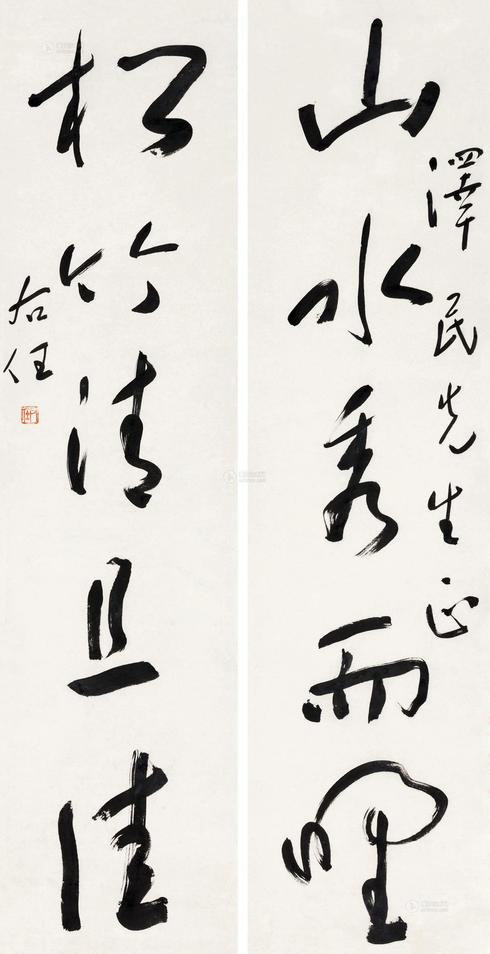 山水秀而野
澤民先生正
松竹清且佳
右任